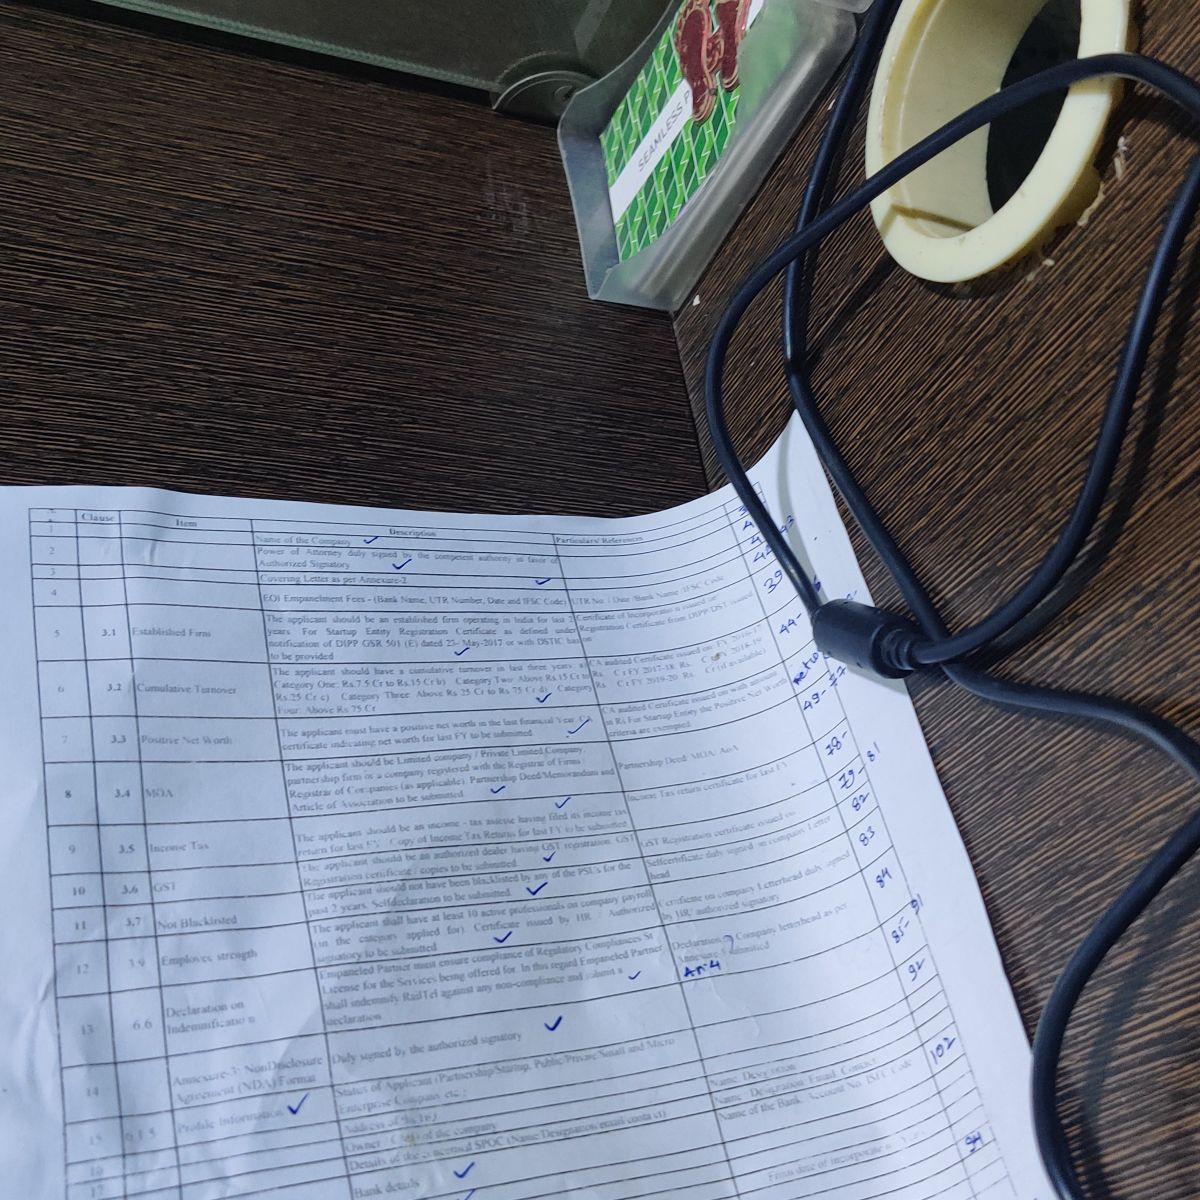 SEAMLESS P
Clause Item Description Particulars/ References
1 Name of the Company
2 Power of Attorney duly signed by the competent authority in favor of
Authorized Signatory
3 Covering Letter as per Annexure-2
4 EOI Empanelment Fees - (Bank Name, UTR Number, Date and IFSC Code) UTR No. / Date /Bank Name /IFSC Code
39
5 3.1 Established Firm
The applicant should be an established firm operating in India for last 2
years. For Startup Entity Registration Certificate as defined under
notification of DIPP GSR 501 (E) dated 23- May-2017 or with DSTIC has
to be provided
Certificate of Incorporation issued on
Registration Certificate from DIPP/DST issued
on
44-
6 3.2 Cumulative Turnover
The applicant should have a cumulative turnover in last three years a)
Category One: Rs.7.5 Cr to Rs.15 Cr b) Category Two: Above Rs.15 Cr to
Rs.25 Cr c) Category Three: Above Rs 25 Cr to Rs 75 Cr d) Category
Four: Above Rs 75 Cr
CA audited Certificate issued on FY 2016-17
Rs. Cr FY 2017-18 Rs. Cr FY 2018-19
Rs. Cr FY 2019-20 Rs. Cr (if available)
7 3.3 Positive Net Worth
The applicant must have a positive net worth in the last financial Year. CA
certificate indicating net worth for last FY to be submitted
CA audited Certificate issued on with amount
in Rs For Startup Entity the Positive Net Worth
criteria are exempted.
49-
8 3.4 MOA
The applicant should be Limited company / Private Limited Company,
partnership firm or a company registered with the Registrar of Firms/
Registrar of Companies (as applicable). Partnership Deed/Memorandum and
Article of Association to be submitted
Partnership Deed/ MOA/ AoA
78-
9 3.5 Income Tax
The applicant should be an income - tax assesse having filed its income tax
return for last FY. Copy of Income Tax Returns for last FY to be submitted
Income Tax return certificate for last FY
79-81
10 3.6 GST
The applicant should be an authorized dealer having GST registration. GST
Registration certificate / copies to be submitted
GST Registration certificate issued on
82
11 3.7 Not Blacklisted
The applicant should not have been blacklisted by any of the PSU's for the
past 2 years. Selfdeclaration to be submitted.
Selfcertificate duly signed on company Letter
head
83
12 3.9 Employee strength
The applicant shall have at least 10 active professionals on company payroll
(in the category applied for). Certificate issued by HR / Authorized
signatory to be submitted
Certificate on company Letterhead duly signed
by HR/ authorized signatory
84
13 6.6 Declaration on
Indemnification
Empaneled Partner must ensure compliance of Regulatory Compliances St
License for the Services being offered for. In this regard Empaneled Partner
shall indemnify RailTel against any non-compliance and submit a
declaration
Declaration Company letterhead as per
Annexure submitted
An-4
85-91
14 Annexure-3: NonDisclosure
Agreement (NDA) Format
Duly signed by the authorized signatory
92
15 Profile Information
Status of Applicant (Partnership/Startup, Public/Private/Small and Micro
Enterprise Company etc.)
Owner / CMD of the company
Name Designation
102
Details of the concerned SPOC (Name/Designation/email/contact)
Name Designation Email Contact
17 Bank details
Name of the Bank, Account No, ISFC Code
From date of incorporate
94